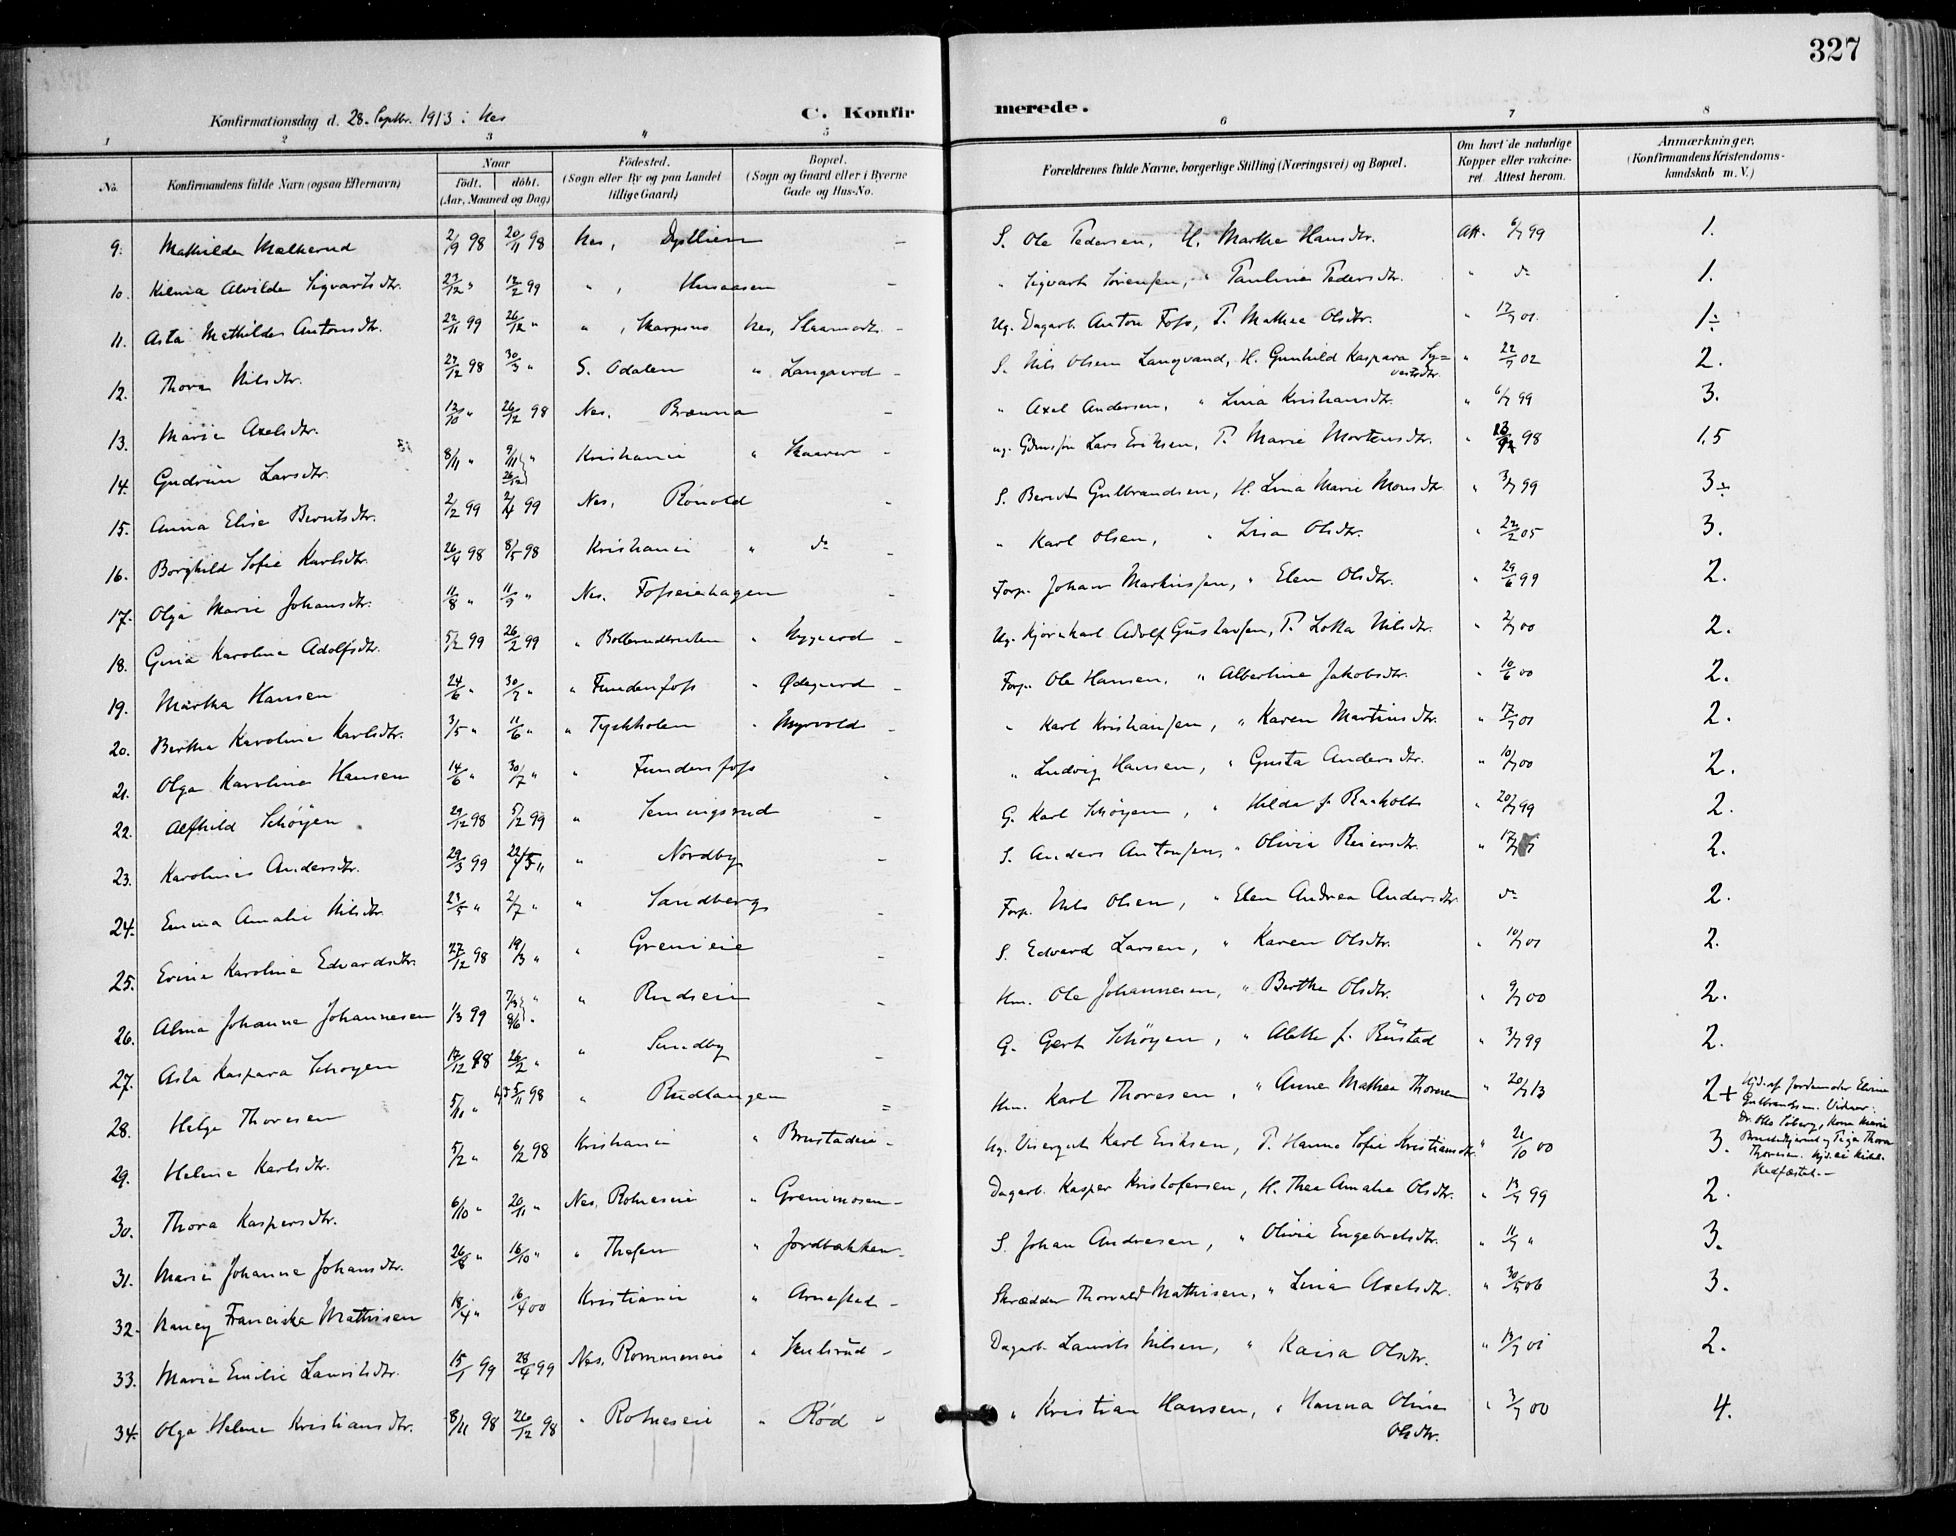 327
Konfirmationsdag d. 28. Septbr. 1913 i Nes
C. Konfirmerede.
1 2 3 " 5 6 7 8
No.
Konfirmandens fulde Navn (ogsaa Efternavn)
Naar
födt. döbt.
(Aar, Maaned og Dag)
Födested.
(Sogn eller By og paa Landet
tillige Gaard)
Bopæl.
(Sogn og Gaard eller i Byerne
Gade og Hus-No.
Forældrenes fulde Navne, borgerlige Stilling (Næringsvei) og Bopæl.
Om havt de naturlige
Kopper eller vakcine-
ret Attest herom.
Anmærkninger.
(Konfirmandens Kristendoms-
kundskab m. V.)
9. Mathilde Melkerud 2/9 98 20/11 98 Nes, Dystlien - S. Ole Pedersen, H. Marthe Hansdtr. Att. 6/7 99 1.
10. Alvilde Sigvartsdtr. 12/2 99 " , - " Sigvart Sörensen, " Pauline Pedersdtr. " do 1.
11. Asta Mathilde Antonsdtr. 22/11 99 26/12 " " , Skarpsno Nes, - Ug. Dagarb. Anton Foss, P. Mathea Olsdtr. " 1÷
12. Thora Nilsdtr. 27/12 98 30/3 " S. Odalen " Langaard - S. Nils Olsen Langvand, H. Gunhild Kaspara Sy=
vertsdtr. " 22/7 02 2.
13. Marie Axelsdtr. 12/10 " 26/12 98 Nes, Brænna - " Axel Andersen, " Lina Kristiansdtr. " 6/7 99 3.
14. Gudrun Larsdtr. 8/11 " 9/11 " 26/12 Kristiania " Skaarer - ug. Lars Eriksen, P. Marie Mortensdtr. " 98 1.5
15. Anna Elise Berntsdtr. 2/2 99 2/4 99 Nes, Rönold - S. Bernt Gulbrandsen, H. Lina Marie Monsdtr. " 3/7 99 3÷
16. Borghild Sofie Karlsdtr. 26/4 98 8/5 98 Kristiania " do - " Karl Olsen, " Lisa Olsdtr. " 22/2 05 3.
17. Olga Marie Johansdtr. 11/8 " 11/9 " Nes. Fosseiehagen - Forp. Johan Markussen, " Elen Olsdtr. " 29/6 99 2.
18. Gina Karoline Adolfsdtr. 5/2 99 26/2 99 " " Nygaard - Ug. Kjörekarl Adolf Gustavsen, P. Lotta Nilsdtr. " 2/7 00 2.
19. Martha Hansen 24/6 " 30/7 " " Fundenfoss " Ødegaard - Forp. Ole Hansen, " Albertine Jakobsdtr. " 10/6 00 2.
20. Berthe Karoline Karlsdtr. 3/5 " 11/6 " " Tyskholen " Myrvold - " Karl Kristiansen, " Karen Martinsdtr. " 17/7 01 2.
21. Olga Karoline Hansen 14/6 " 30/7 " " Fundenfoss - " Ludvig Hansen, " Gusta Andersdtr. " 10/7 00 2.
22. Alfhild Schöyen 29/12 98 5/2 99 " Semingsrud - G. Karl Schöyen, " Hilda f. Raaholt " 20/7 99 2.
23. Karoline Andersdtr. 29/3 99 22/5 " " Nordby - S. Anders Antonsen, " Olivia Reiersdtr. " 2.
24. Emma Amalie Nilsdtr. 23/5 " 2/7 " " Sandberg - Forp. Nils Olsen, " Elen Andrea Andersdtr. do 2.
25. Karoline Edvardsdtr. 27/12 98 19/3 " " Grenieie - S. Edvard Larsen, " Karen Olsdtr. " 10/7 01 2.
26. Alma Johanne Johannesen 1/3 99 " Rudseie - Hm. Ole Johannesen, " Berthe Olsdtr. " 9/7 00 2.
27. Asta Kaspara Schöyen 17/12 98 26/2 " " Sundby - G. Gert Schöyen, " Alette f. Rustad " 3/7 99 2.
28. Helge Thoresen 5/11 " 5/11 98 " Rudtangen = Hm. Karl Thoresen, " Anne Mathea Thoresen " 20/9 13 2+
Hjd. af Jordemoder
Gulbrandsen. Vidner:
Thoresen.
29. Helene Karlsdtr. 5/2 " 6/2 98 Kristiania " Brustadeie - Ug. Visergut Karl Eriksen, P. Hanna Sofie Kristiansdtr. " 21/10 00 3.
30. Thora Kaspersdtr. 6/10 " 20/11 " Nes, Rotneseie " Grenimosen - Dagarb. Kasper Kristofersen, H. Thea Amalie Olsdtr. " 99 2.
31. Marie Johanne Johansdtr. 26/8 " 16/10 " " " Jordbakken - S. Johan Andresen, " Olivia Engebretsdtr. " 11/7 " 3.
32. Nancy Franciska Mathisen 18/4 " 16/4 00 Kristiania " Arnestad - Skrædder Thorvald Mathisen, " Lina Axelsdtr. " 30/5 06 3.
33. Marie Emilie Lauritsdtr. 15/1 99 28/4 99 Nes. " - Dagarb. Laurits Nilsen, " Kaisa Olsdtr. " 2.
34. Olga Helene Kristiansdtr. 8/11 98 26/12 98 " Rotneseie " Rød " " Kristian Hansen, " Hanna Oline
Olsdtr. " 3/7 00 4.